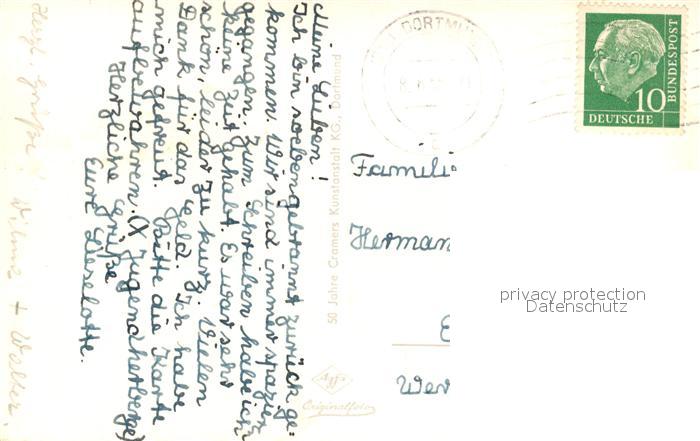 Meine Lieben!
Ich bin soeben gebrannt zurück ge=
kommen. Wir sind immer spazieren
gegangen. Zum Schreiben habe ich
keine Zeit gehabt. Es war sehr
schön, leider zu kurz. Vielen
Dank für das Geld. Ich habe
mich gefreut. Bitte die Karte
aufbewahren. (X Jugendherberge)
Herzliche Grüße
Eure Lieselotte.
Herzl. Grüße!
+ Walter.
50 Jahre Cramers Kunstanstalt KG., Dortmund
Agfa
Originalfoto
DORTMU
10
DEUTSCHE
BUNDESPOST
Famili
Herman
Wer
privacy protection
Datenschutz